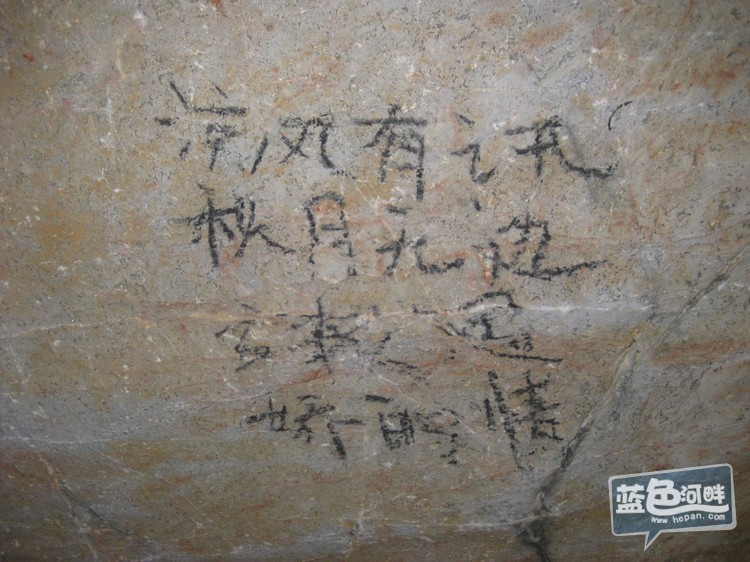 凉风有讯
秋月无边
娇的情
蓝色河畔
www.hepan.com